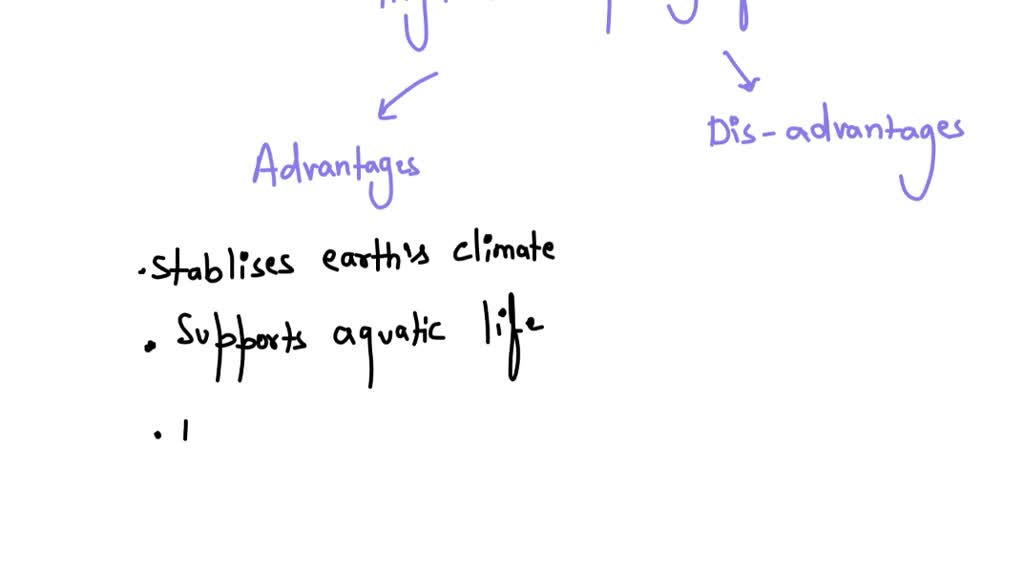 Advantages
Dis-advantages
.stablises earth's climate
. Supports aquatic life
.